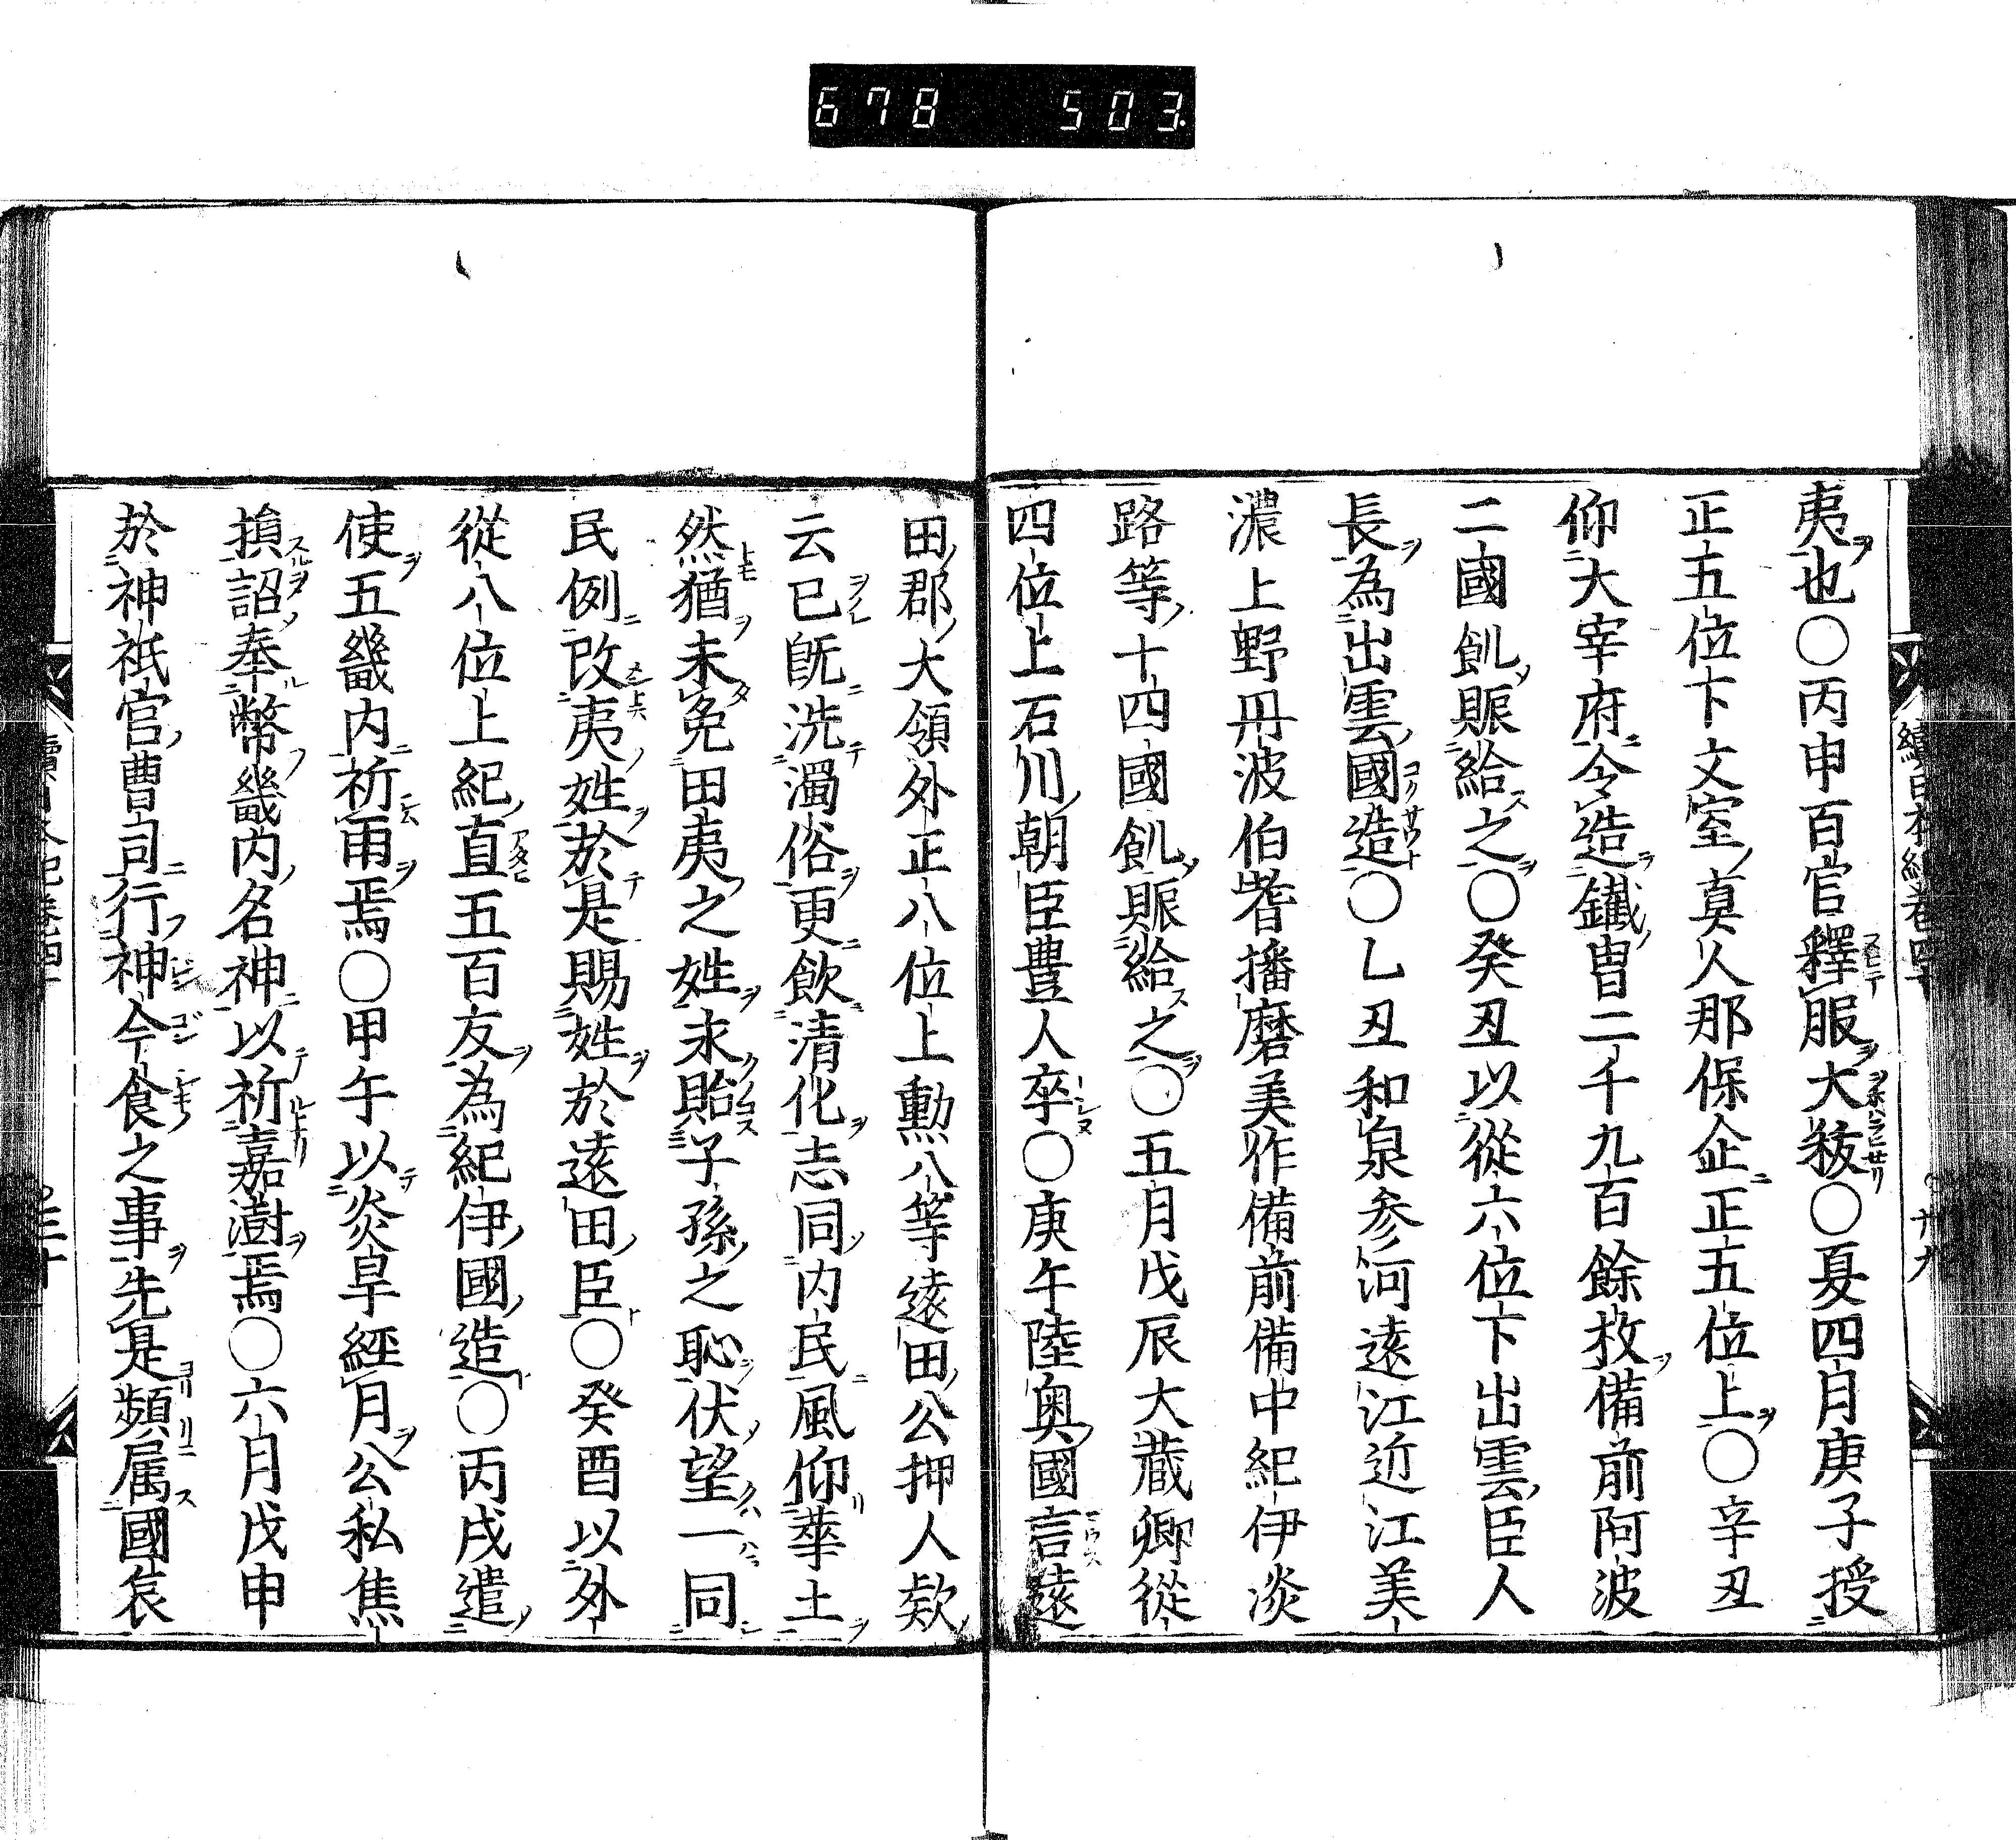 678 503
夷也〇丙申百官釋服大秡〇夏四月庚子授
正五位下文室真人那保企正五位上〇辛丑
仰大宰府令造鐵冑二千九百餘枚備前阿波
二國飢賑給之〇癸丑以從六位下出雲臣人
長為出雲國造〇乙丑和泉参河遠江近江美
濃上野丹波伯耆播磨美作備前備中紀伊淡
路等十四國飢賑給之〇五月戊辰大藏卿從
四位上石川朝臣豊人卒〇庚午陸奥國言遠
田郡大領外正八位上勲八等遠田公押人欵
云已既洗濁俗更飲清化志同内民風仰華土
然猶未免田夷之姓永貽子孫之恥伏望一同
民例改夷姓於是賜姓於遠田臣〇癸酉以外
從八位上紀直五百友為紀伊國造〇丙戌遣
使五畿内祈雨焉〇甲午以炎旱經月公私焦
損詔奉幣畿内名神以祈嘉澍焉〇六月戊申
於神祇官曹司行神今食之事先是頻属國哀